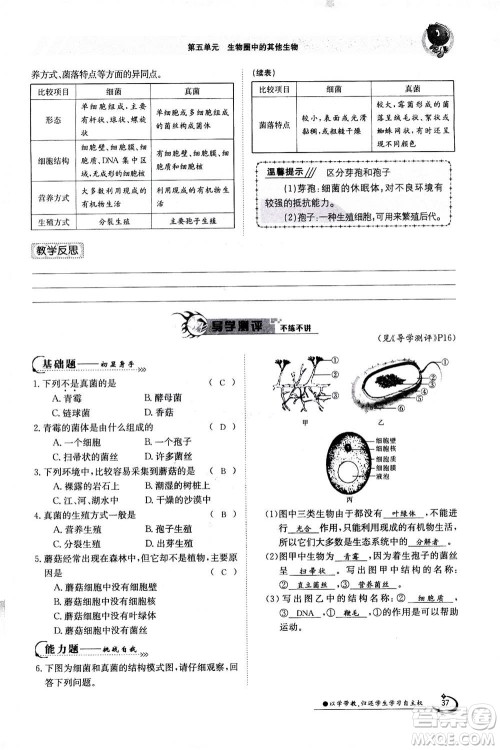 第五单元 生物圈中的其他生物
养方式、菌落特点等方面的异同点。
比较项目 细菌 真菌
形态 单细胞组成,有杆状、球状、螺旋状 单细胞或多细胞组成,多数有发达的菌丝构成
细胞结构 细胞壁、细胞膜、细胞质、DNA 集中区域,无成形的细胞核 细胞壁、细胞膜、细胞质、细胞核
营养方式 大多数利用现成的有机物生活 大多数利用现成的有机物生活
生殖方式 分裂生殖 孢子生殖
(续表)
比较项目 细菌 真菌
菌落特点 较小,表面或光滑黏稠,或粗糙干燥 较大,霉菌形成的菌落常呈绒毛状、絮状或蜘蛛网状,有时还能呈现不同的颜色
温馨提示 区分芽孢和孢子
(1)芽孢:细菌的休眠体,对不良环境有较强的抵抗能力。
(2)孢子:一种生殖细胞,可用来繁殖后代。
教学反思
导学测评 不练不讲
(见《导学测评》P16)
基础题——初显身手
1. 下列不是真菌的是 ( C )
A. 青霉 B. 酵母菌
C. 链球菌 D. 香菇
2. 青霉的菌体由什么组成的 ( D )
A. 一个细胞 B. 一个孢子
C. 扫帚状的菌丝 D. 许多菌丝
3. 下列环境中,比较容易采集到蘑菇的是( B )
A. 裸露的岩石上
C. 江、河、湖水中 D. 干燥的沙漠中
4. 真菌的生殖方式一般是 ( B )
A. 营养生殖 B. 孢子生殖
C. 分裂生殖
5. 蘑菇经常出现在森林中,但不在那里制氧,原因是 ( C )
A. 蘑菇细胞中没有细胞壁
B. 蘑菇细胞中没有细胞核
C. 蘑菇细胞中没有叶绿体
D. 蘑菇细胞中没有细胞膜
能力题——挑战自我
6. 下图为细菌和真菌的结构模式图,请仔细观察,回答问题。
① ② ③ ④
① ② ③ ④
甲 乙
细胞壁
细胞核
细胞质
细胞膜
液泡
丙
(1)图中三类生物由于都没有 叶绿体 ,不能进行 光合 作用,只能利用现成的有机物生活,所以它们大多数是生态系统中的 分解者 。
(2)图甲中的生物为 青霉 ,因为着生孢子的菌丝呈 扫帚状 。写出图甲中的结构的名称:② 直立菌丝 ;③ 营养菌丝 。
(3)写出图乙中的结构名称:① 荚膜 ;③ DNA ;④ 鞭毛 。
以学带教,归还学生学习自主权
37